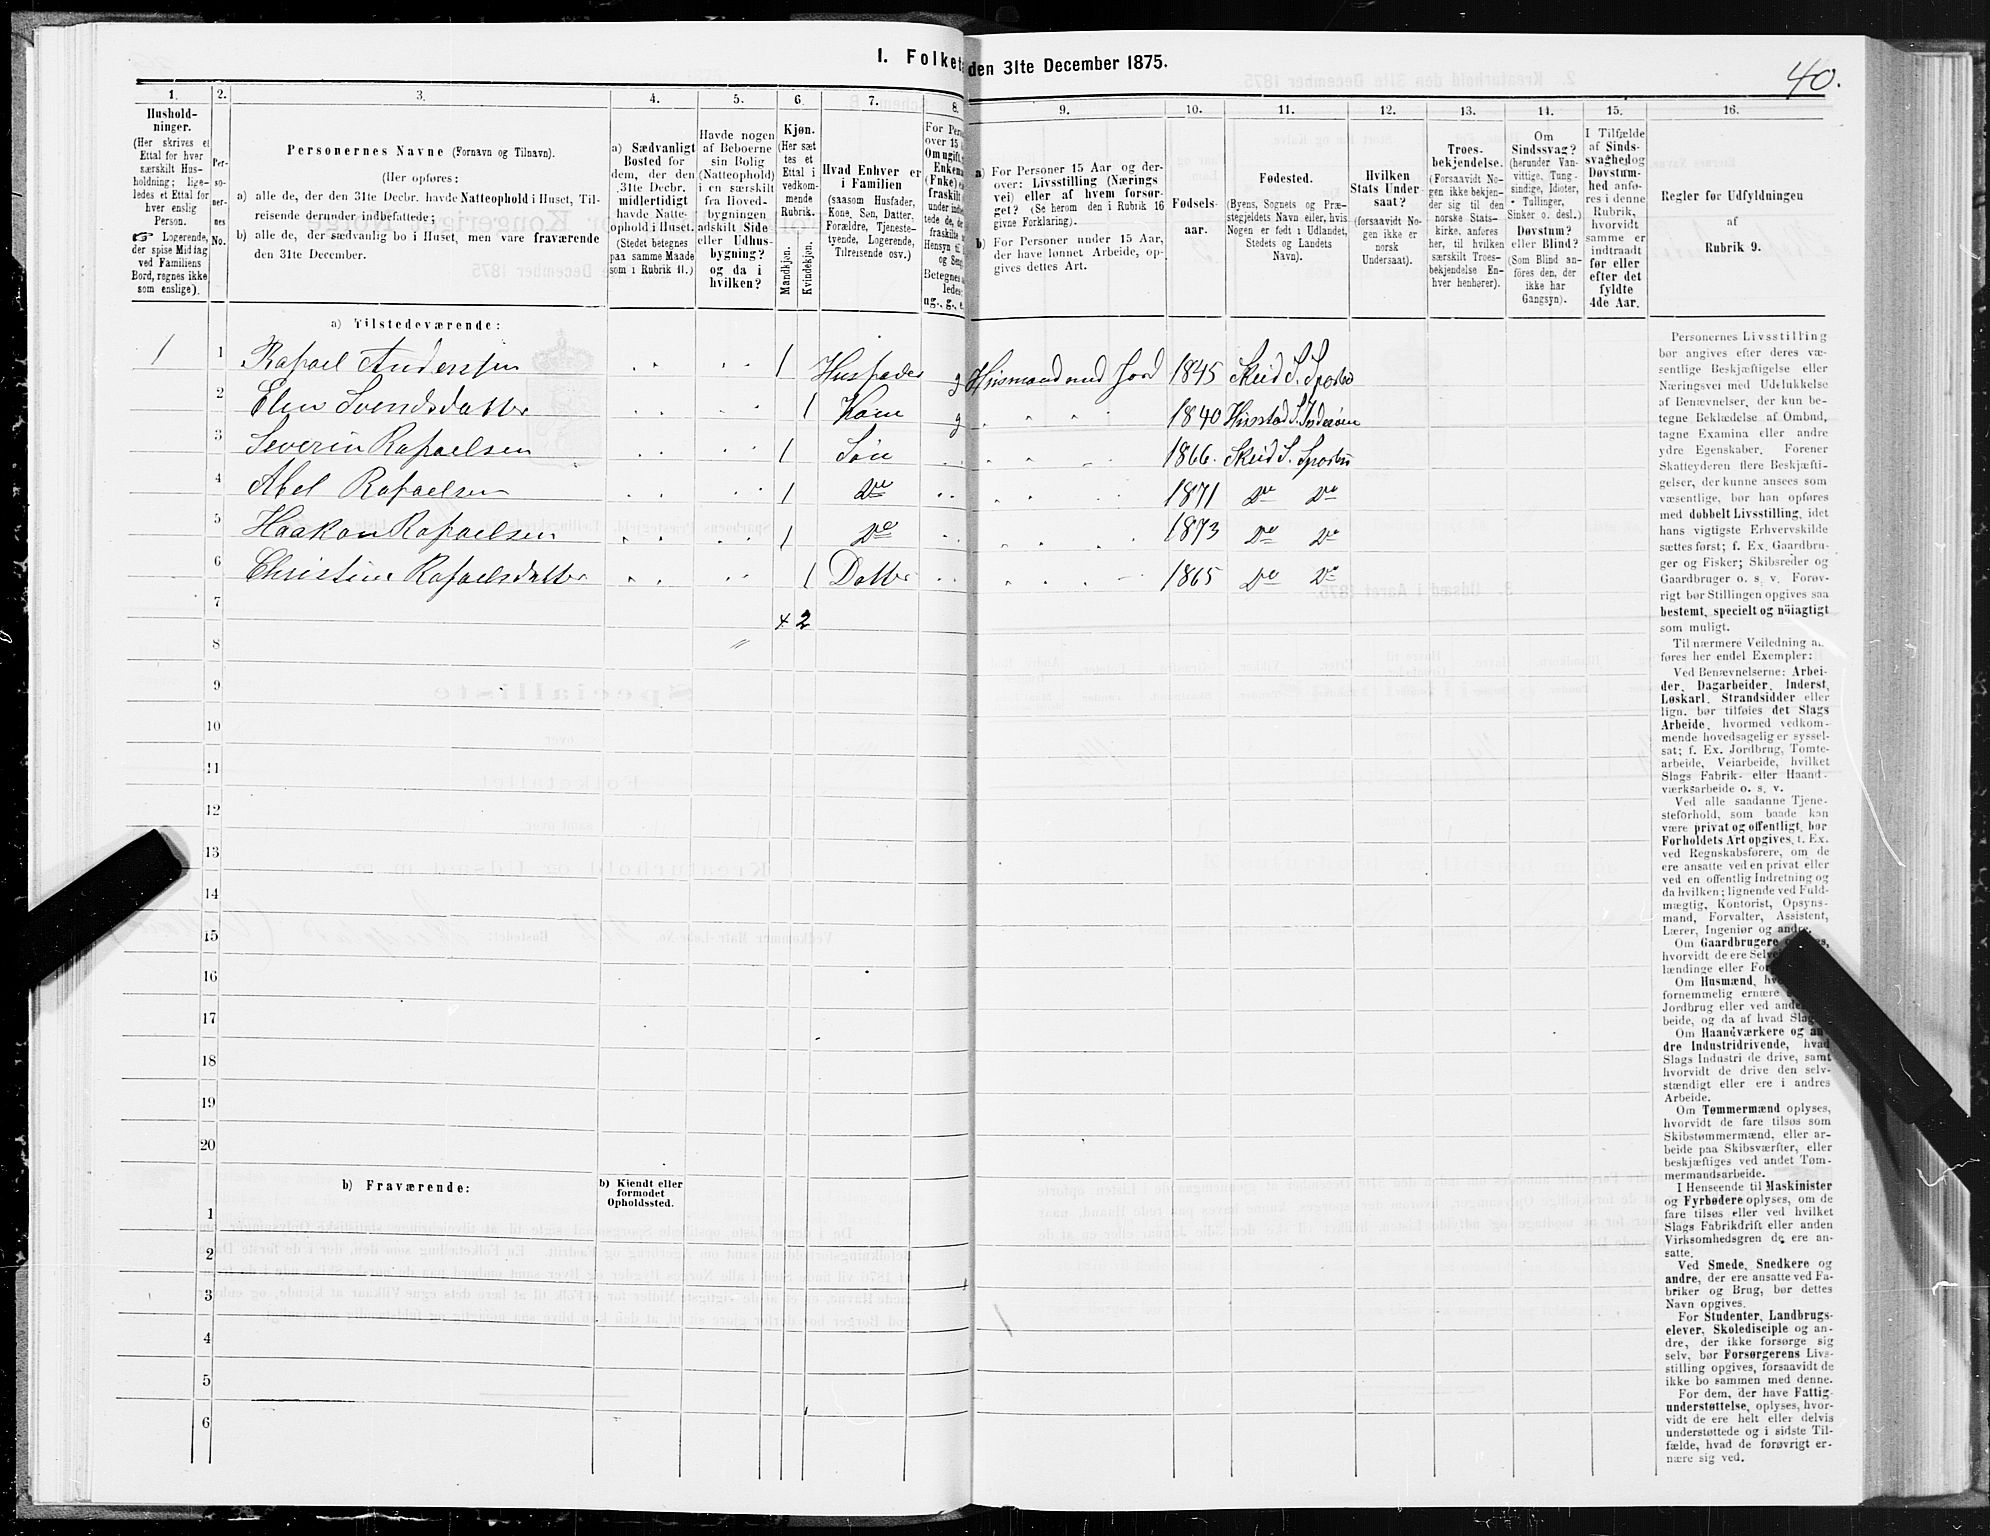 I. Folketæ
den 31te December 1875.
40.
1.
2.
3.
4.
5.
6.
7.
8.
9.
10.
11.
12.
13.
14.
15.
16.
Hushold-
ninger.
(Her skrives et
Ettal for hver
særskilt Hus-
holdning; lige-
ledes et Ettal for
hver enslig
Person.
☞ Logerende,
der spise Middag
ved Familiens
Bord, regnes ikke
som enslige).
Per-
so-
ner-
nes
No.
Personernes Navne (Fornavn og Tilnavn).
(Her opføres:
a) alle de, der den 31te Decbr. havde Natteophold i Huset, Til-
reisende derunder indbefattede;
b) alle de, der sædvanlig bo i Huset, men vare fraværende
den 31te December.
a) Sædvanligt
Bosted for
dem, der den
31te Decbr.
midlertidigt
havde Natte-
ophold i Huset.
(Stedet betegnes
paa samme Maade
som i Rubrik 11.)
Havde nogen
af Beboerne
sin Bolig
(Natteophold)
i en særskilt
fra Hoved-
bygningen
adskilt Side
eller Udhus-
bygning?
og da i
hvilken?
Kjøn.
(Her sæt
tes et
Ettal i
vedkom-
mende
Rubrik.
Mandkjøn.
Kvindekjøn.
Hvad Enhver er
i Familien
(saasom Husfader,
Kone, Søn, Datter,
Forældre, Tjeneste-
tyende, Logerende,
Tilreisende osv.)
For Pers
over 15
Om ugift,
Enkema
(Enke) e
fraskilt
under
tede de, 
fraskilte
Hensyn ti
og Seng
Betegnes
ledes:
ug., g., e.
a) For Personer 15 Aar og der-
over: Livsstilling (Nærings
vei) eller af hvem forsør-
get? (Se herom den i Rubrik 16
givne Forklaring).
b) For Personer under 15 Aar,
der have lønnet Arbeide, op-
gives dettes Art.
Fødsels-
aar.
Fødested.
(Byens, Sognets og Præ-
stegjeldets Navn eller, hvis
Nogen er født i Udlandet,
Stedets og Landets
Navn).
Hvilken
Stats Under-
saat?
(forsaavidt No-
gen ikke er
norsk
Undersaat).
Troes-
bekjendelse.
(Forsaavidt No-
gen ikke bekjen-
der sig til den
norske Stats-
kirke, anføres
her, til hvilken
særskilt Troes-
bekjendelse En-
hver henhører).
Om
Sindssvag?
(herunder Van-
vittige, Tung-
sindige, Idioter,
Tullinger,
Sinker o. desl.)
Døvstum?
eller Blind?
(Som Blind an-
føres den, der
ikke har
Gangsyn).
I Tilfælde
af Sinds-
svaghed og
Døvstum-
hed anfø-
res i denne
Rubrik,
hvorvidt
samme er
indtraadt
før eller
efter det
fyldte
4de Aar.
Regler for Udfyldningen
af
Rubrik 9.
a) Tilstedeværende:
1 1 Rafael Andersen 1 Husfader g Huusmand med Jord 1845 Skeid S. Sparbo
2 Elen Svendsdatter 1 Kone g 1840 Hustad S. Inderøen
3 Severin Rafaelsen 1 Søn 1866. Skeid S. Sparbo
4 Abel Rafaelsen 1 Do 1871 Do Do
5 Haakon Rafaelsen 1 Do 1873 Do Do
6 Christine Rafaelsdatter 1 Datter 1865 Do Do
7 4 2
8
9
10
11
12
13
14
15
16
17
18
19
20
b) Fraværende:
b) Kiendt eller
formodet
Opholdssted.
1
2
3
4
5
6
Personernes Livsstilling
bør angives efter deres væ-
sentlige Beskjæftigelse eller
Næringsvei med Udelukkelse
af Benævnelser, der kun be-
tegne Beklædelse af Ombud,
tagne Examina eller andre
ydre Egenskaber. Forener
Skatteyderen flere Beskjæfti-
gelser, der kunne ansees som
væsentlige, bør han opføres
med dobbelt Livsstilling, idet
hans vigtigste Erhvervskilde
sættes først; f. Ex. Gaardbru-
ger og Fisker; Skibsreder og
Gaardbruger o. s. v. Forøv-
rigt bør Stillingen opgives saa
bestemt, specielt og nöiagtigt
som muligt.
Til nærmere Veiledning an-
føres her endel Exempler:
Ved Benævnelserne: Arbei-
der, Dagarbeider, Inderst,
Løskarl, Strandsidder eller
lign. bør tilføies det Slags
Arbeide, hvormed vedkom-
mende hovedsagelig er syssel-
sat; f. Ex. Jordbrug, Tomte-
arbeide, Veiarbeide, hvilket
Slags Fabrik- eller Haand-
værksarbeide o. s. v.
Ved alle saadanne Tjene-
steforhold, som baade kan
være privat og offentligt, bør
Forholdets Art opgives, f. Ex.
ved Regnskabsførere, om de
ere ansatte ved en privat eller
ved en offentlig Indretning og
da hvilken; lignende ved Fuld-
mægtig, Kontorist, Opsyns-
mand, Forvalter, Assistent,
Lærer, Ingeniør og andre.
Om Gaardbrugere
hvorvidt de ere
lændinge eller
Om Husmænd,
fornemmelig ernære
Jordbrug eller ved
beide, og da af hvad
Om Haandværkere og an-
dre Industridrivende, hvad
Slags Industri de drive, samt
hvorvidt de drive den selv-
stændigt eller ere i andres
Arbeide.
Om Tømmermænd oplyses,
hvorvidt de fare tilsøs som
Skibstømmermænd, eller ar-
beide paa Skibsværfter, eller
beskjæftiges ved andet Tøm-
mermandsarbeide.
I Henseende til Maskinister
og Fyrbødere oplyses, om de
fare tilsøs eller ved hvilket
Slags Fabrikdrift eller anden
Virksomhedsgren de ere an-
satte.
Ved Smede, Snedkere og
andre, der ere ansatte ved Fa-
briker og Brug, bør dettes
Navn opgives.
For Studenter, Landbrugs-
elever, Skoledisciple og an-
dre, der ikke forsørge sig
selv, bør Forsørgerens Livs-
stilling opgives, forsaavidt de
ikke bo sammen med denne.
For dem, der have Fattig-
understøttelse, oplyses, hvor-
vidt de ere helt eller delvis
understøttede og i sidste Til-
fælde, hvad de forøvrigt er-
nære sig ved.